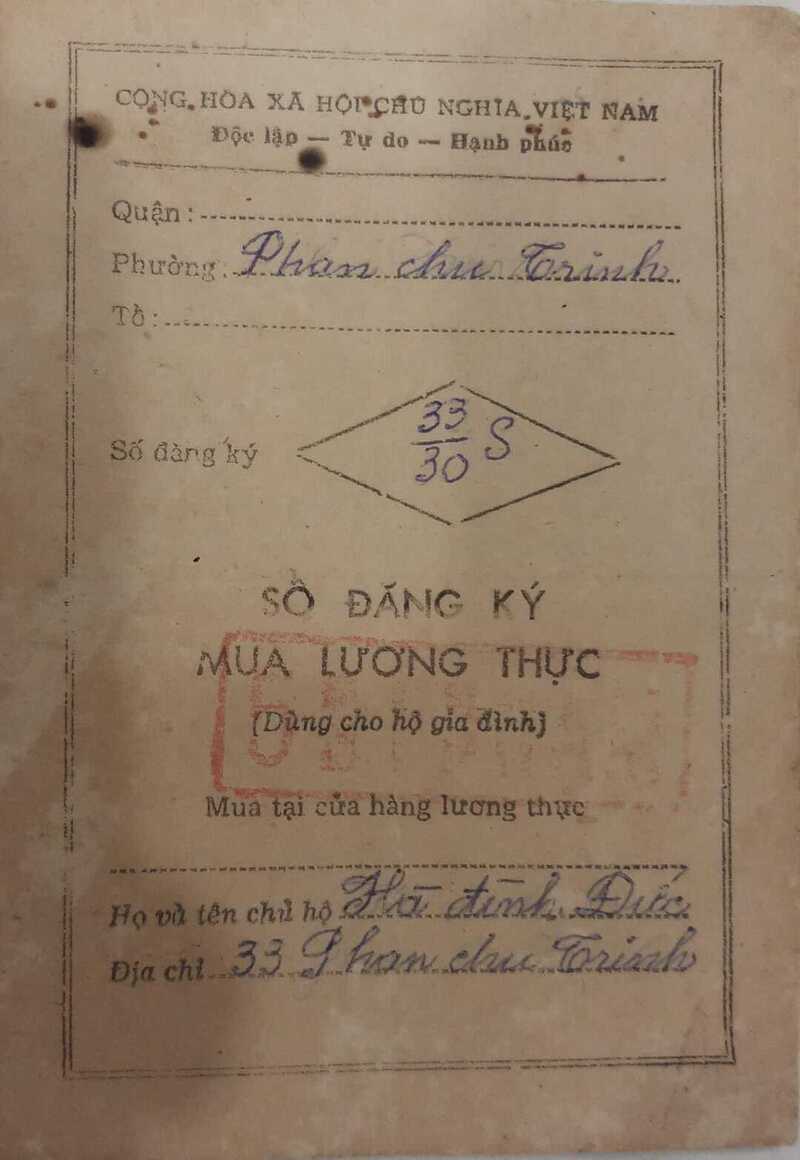 CỘNG HÒA XÃ HỘI CHỦ NGHĨA VIỆT NAM
Độc lập — Tự do — Hạnh phúc
Quận :
Phường : Phan chu Trinh
Tổ :
Số đăng ký
33
30 S
SỔ ĐĂNG KÝ
MUA LƯƠNG THỰC
(Dùng cho hộ gia đình)
Mua tại cửa hàng lương thực
Họ và tên chủ hộ Hà đình Đức
Địa chỉ 33 Phan chu Trinh